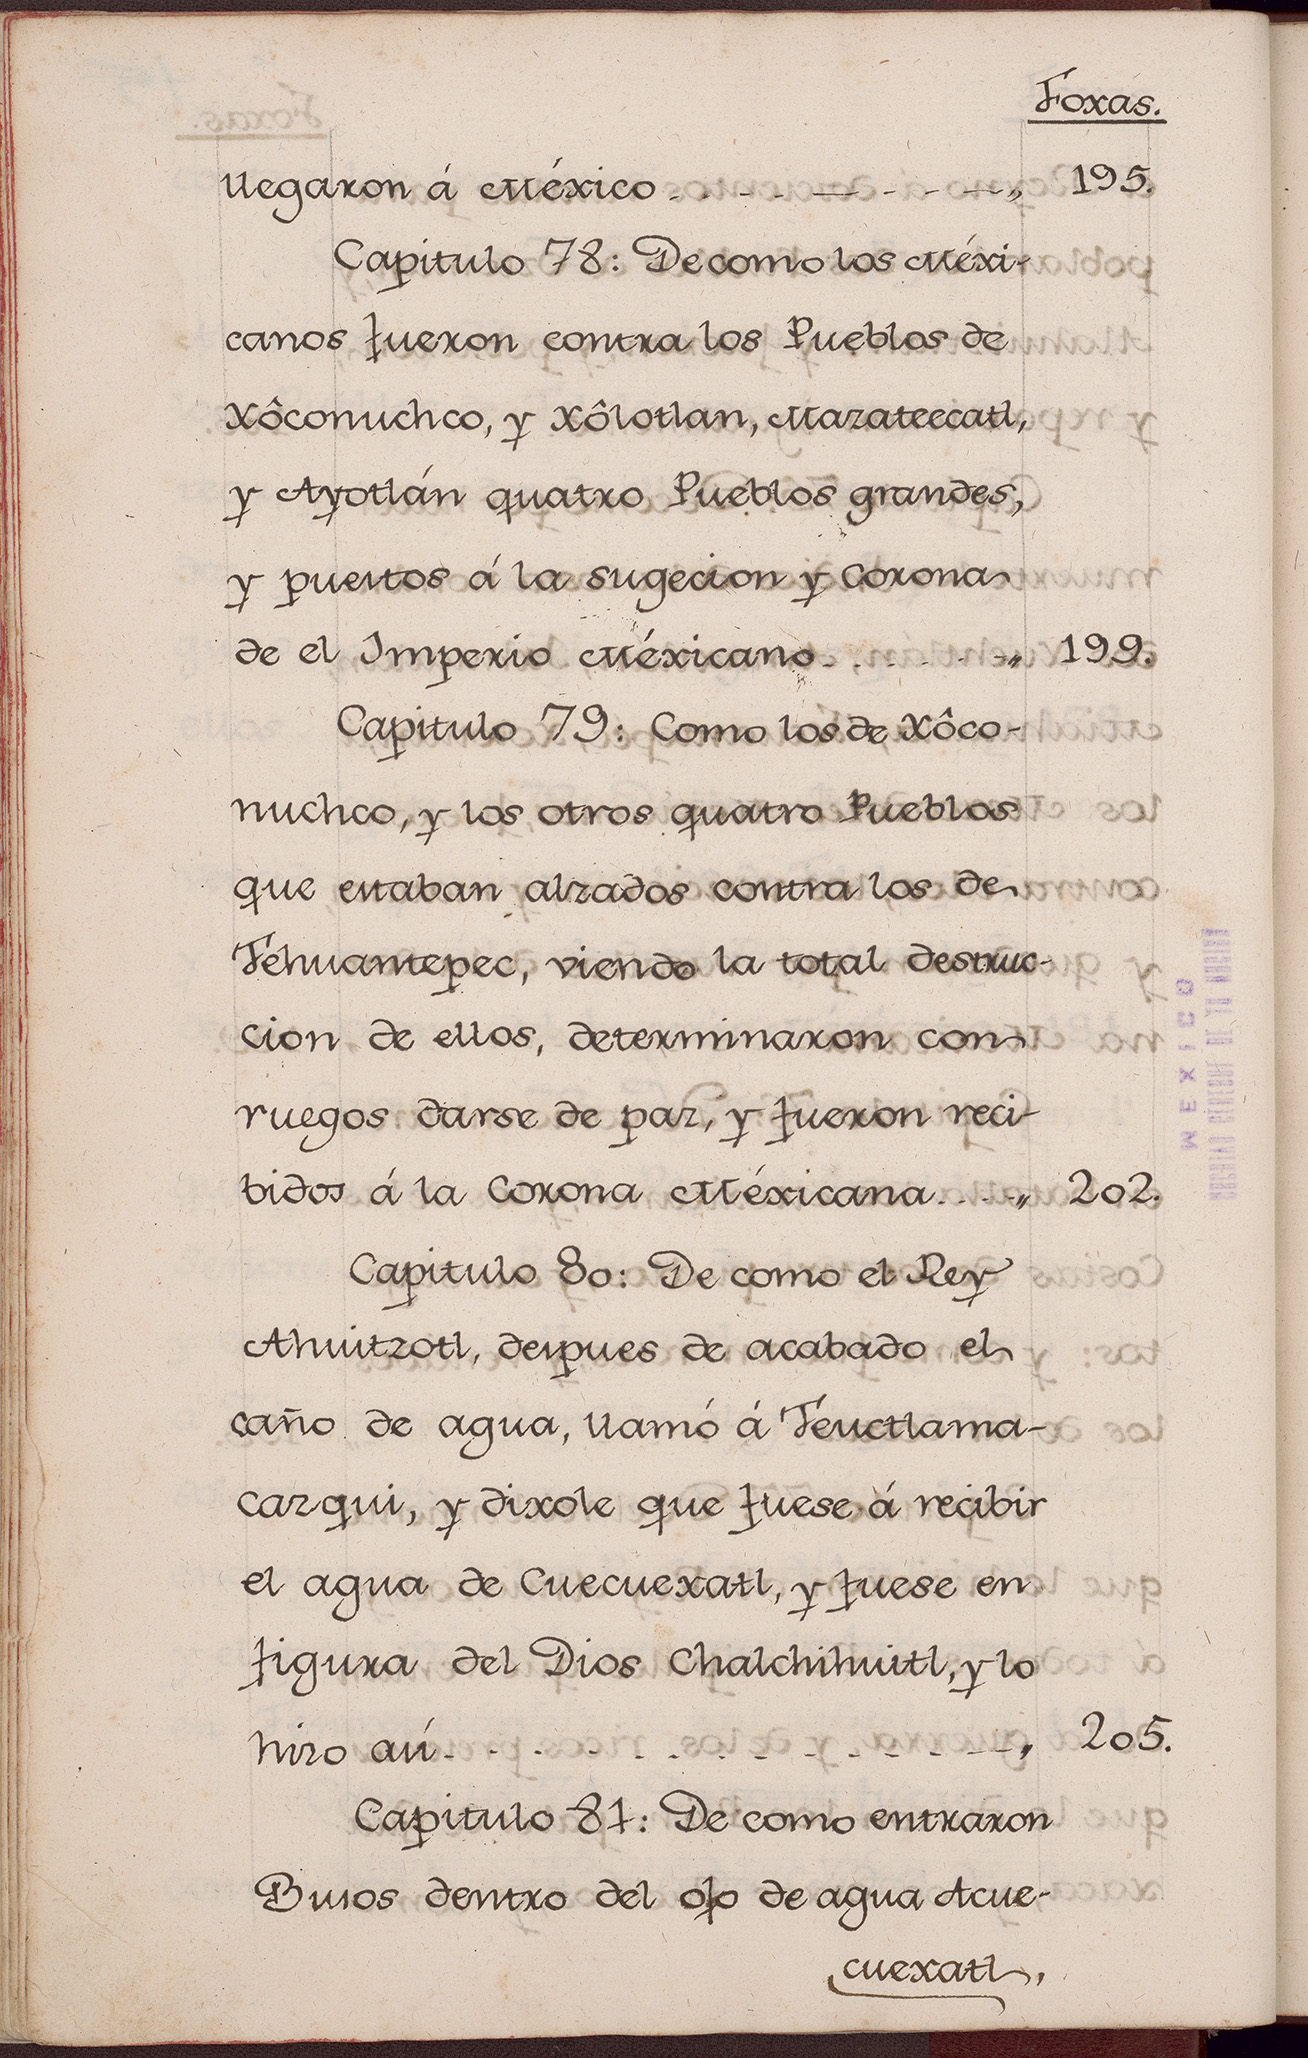 Foxas.
llegaron á México . . . . . . . . . „ 195.
Capitulo 78: De como los Méxi-
canos fueron contra los Pueblos de
Xôconuchco, y Xôlotlan, Mazateecatl,
y Ayotlán quatro Pueblos grandes,
y puestos á la sugecion y Corona
de el Imperio Méxicano . . . . . . „ 199.
Capitulo 79: Como los de Xôco-
nuchco, y los otros quatro Pueblos
que estaban alzados contra los de
Téhuantepec, viendo la total destruc-
cion de ellos, determinaron con
ruegos darse de paz, y fueron reci-
bidos á la Corona Méxicana . . . . „ 202.
Capitulo 80: De como el Rey
Ahuitzotl, despues de acabado el
caño de agua, llamó á Téuctlama-
cazqui, y dixole que fuese á recibir
el agua de Cuecuexatl, y fuese en
figura del Dios Chalchihuitl, y lo
hizo así . . . . . . . . . . . . „ 205.
Capitulo 81: De como entraron
Busos dentro del ojo de agua Acue-
cuexatl,
MEXICO